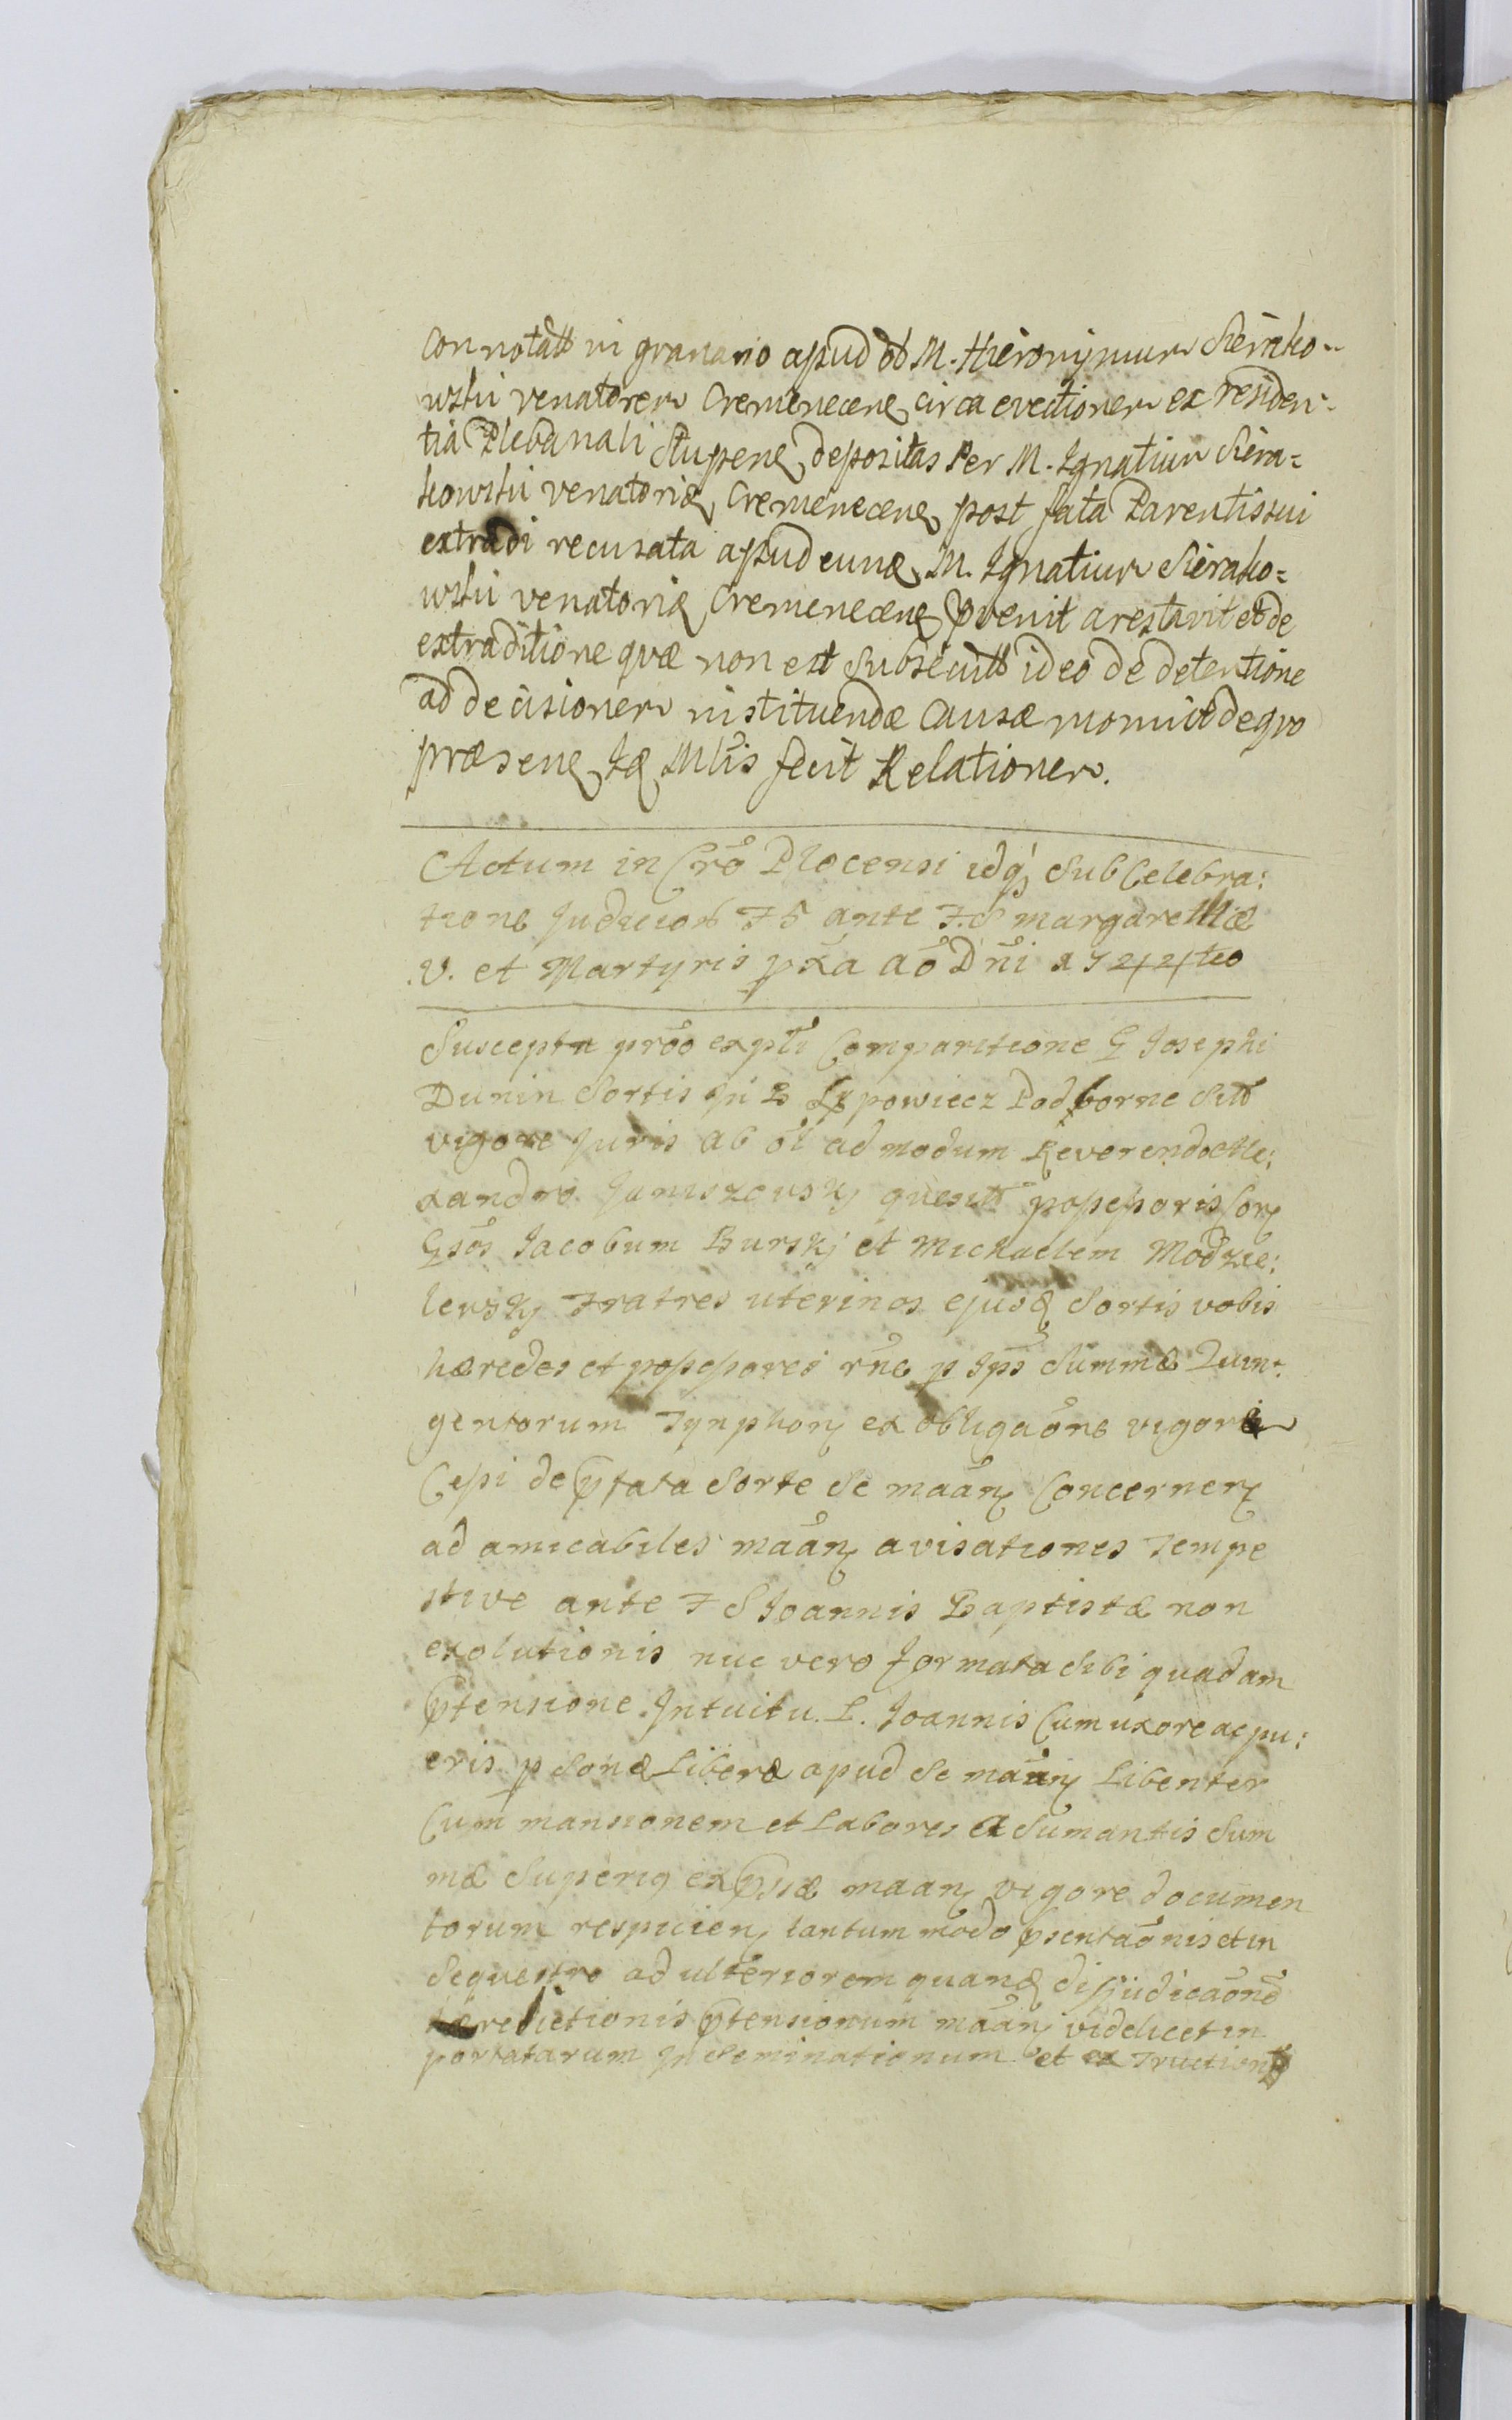 Connotatt in granario apud ol M. Hieronymum Sierako-
wski venatorem Cremenecens circa evectionem ex residen-
tia Plebanali Slupens depositas Per M. Ignatium Siera=
kowski venatorid Cremenecens post fata Parentis sui
extradi recusata apud eund M. Ignatium Sierako=
wski venatorid Cremenecens pvenit arestavit et de
extraditione quæ non est subsecutt ideo de detentione
ad decisionem instituendæ Causæ monuit de quo
præsens Id Mlis fecit Relationem.
Actum in Cro Plocensi idq sub Celebra:
tione Judicior F5 ante F. S margarethæ
V. et Martyris pxa ao Dni 1744to
Suscepta pro expti Comparitione G Josephi
Dunin Sortis in B Lipowiecz Podborne sitt
vigore Juris ab ol admodum Reverendo Ale:
xandro Janiszewsky quesitt possessoris Con
Gsos Jacobum Bursky et Michaelem Modzie:
lewsky Fratres uterinos ejusd Sortis vobis
hæredes et possessores rne p ips Summæ Quin:
gentorum Tynphon ex obligaone vigore
Cepi de pfata Sorte Se maan Concernen
ad amicabiles maan avisationes Tempe
stive ante F S Joannis Baptistæ non
exolutionis nuc vero formata Sibi quadam
ptensione Intuitu L. Joannis Cum uxore ac pu:
eris psonæ Liberæ apud Se maan Libenter
Cum mansionem et Labores asumantis Sum
mæ Superiq expssæ maan vigore documen
torum respicien tantum modo psentaonis et in
Sequestro ad ulteriorem quand disjudicaone
relictionis ptensionum maan videlicet in
portatarum Inseminationum et extruction